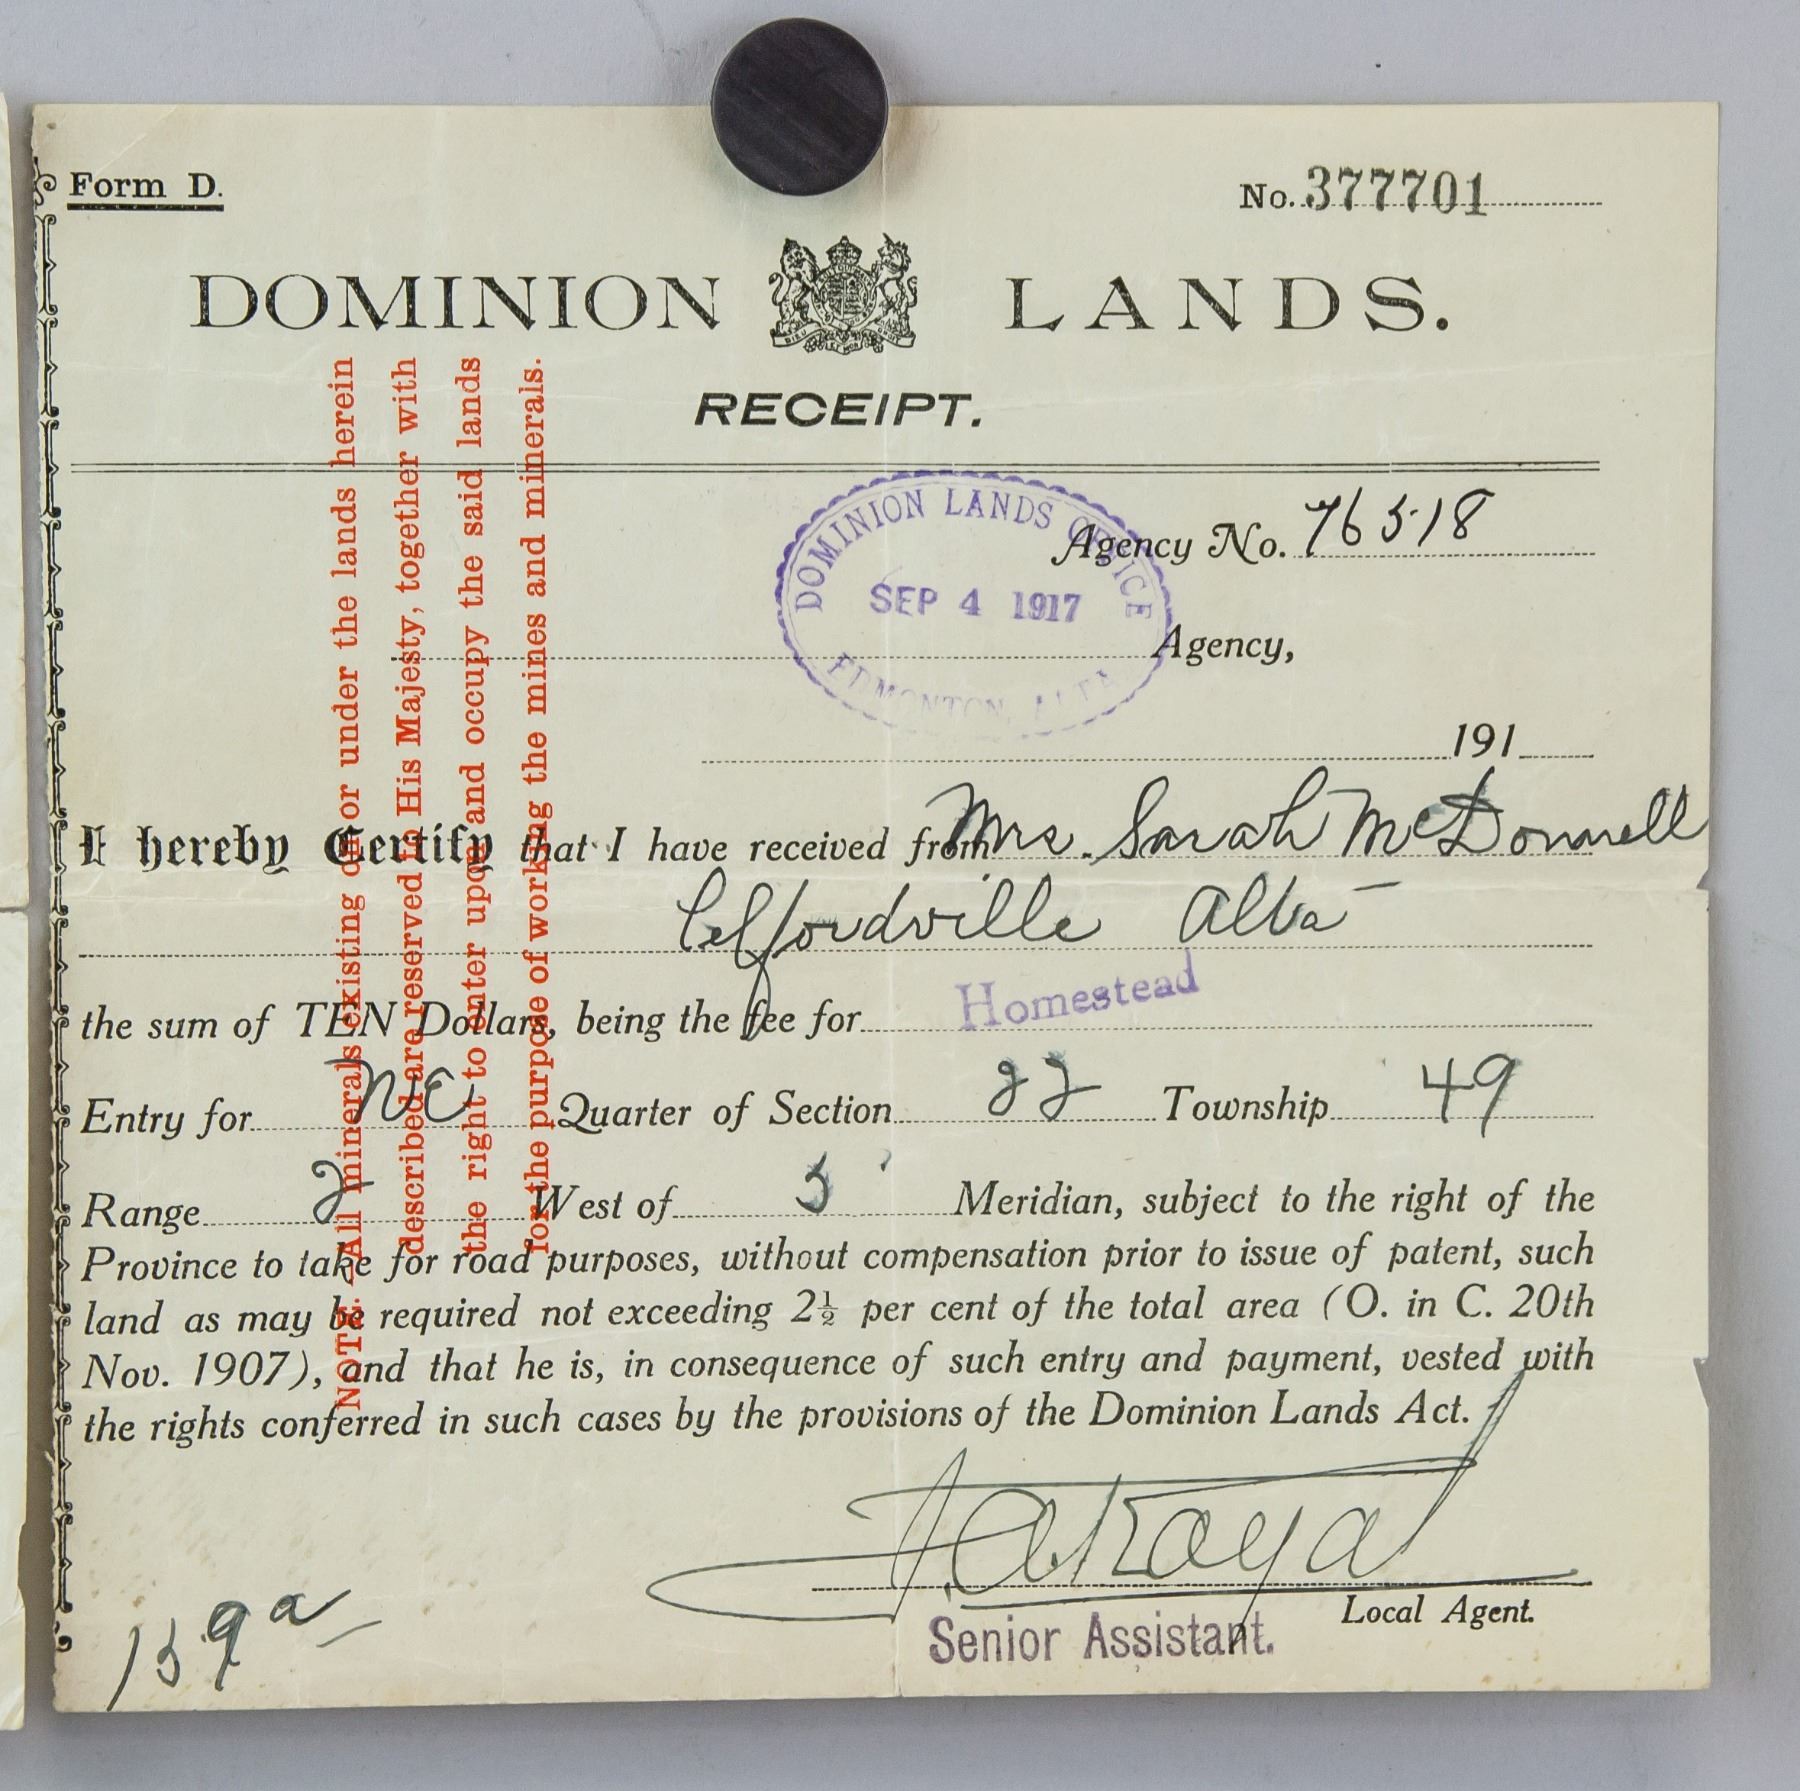 Form D.
No. 377701
DOMINION LANDS.
RECEIPT.
DOMINION LANDS OFFICE
SEP 4 1917
EDMONTON, ALTA
Agency No. 76518
Agency,
191
I hereby Certify that I have received from Mrs. Sarah McDonnell
Alta
the sum of TEN Dollars, being the fee for Homestead
Entry for NE Quarter of Section 22 Township 49
Range 2 West of 5 Meridian, subject to the right of the
Province to take for road purposes, without compensation prior to issue of patent, such
land as may be required not exceeding 2½ per cent of the total area (O. in C. 20th
Nov. 1907), and that he is, in consequence of such entry and payment, vested with
the rights conferred in such cases by the provisions of the Dominion Lands Act.
Local Agent.
Senior Assistant.
159 a
NOTE.—All minerals existing on or under the lands herein
described are reserved to His Majesty, together with
the right to enter upon and occupy the said lands
for the purpose of working the mines and minerals.